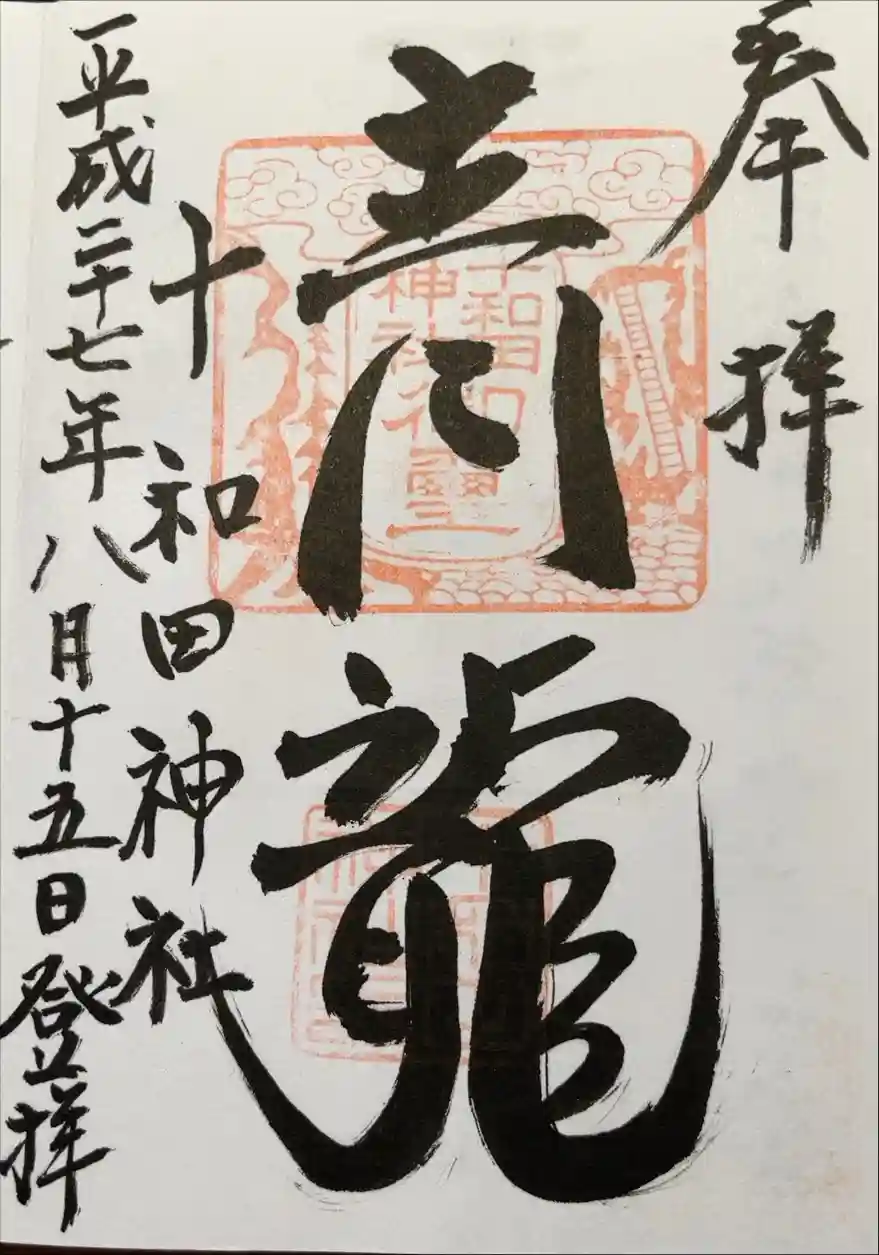 奉拝
青龍
十和田神社
平成二十七年八月十五日登拝
十和田
神社